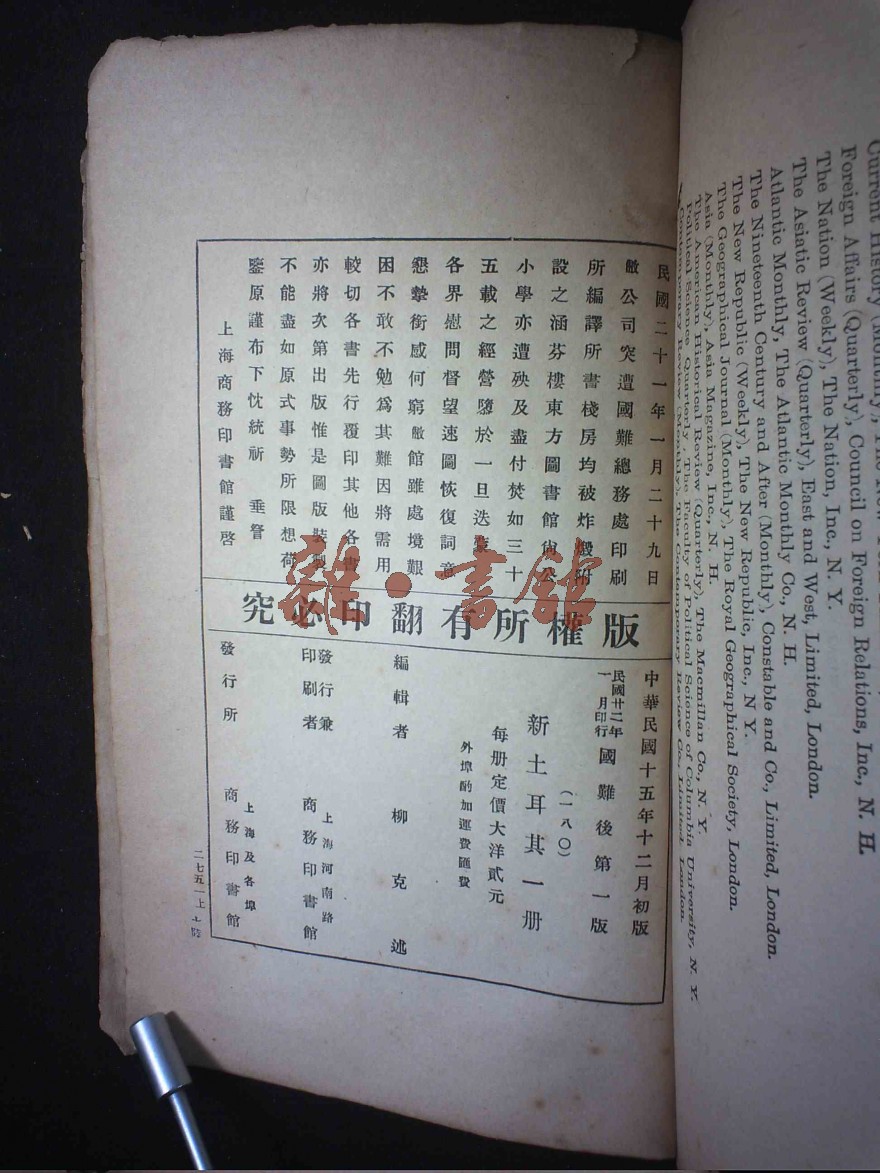 民國二十一年一月二十九日
敝公司突遭國難總務處印刷
所編譯所書棧房均被炸燬附
設之涵芬樓東方圖書館尙公
小學亦遭殃及盡付焚如三十
五載之經營隳於一旦迭蒙
各界慰問督望速圖恢復詞意
懇摯銜感何窮敝館雖處境艱
困不敢不勉爲其難因將需用
較切各書先行覆印其他各書
亦將次第出版惟是圖版裝製
不能盡如原式事勢所限想荷
鑒原謹布下忱統祈 垂詧
上海商務印書館謹啓
版權所有翻印必究
中華民國十五年十二月初版
民國廿二年一月印行 國難後第一版
(一八〇)
新土耳其一册
每册定價大洋貳元
外埠酌加運費匯費
編輯者 柳克述
發行兼印刷者 上海河南路 商務印書館
發行所 上海及各埠 商務印書館
二七五一上
雜·書館
Current History (Monthly), The New
Foreign Affairs (Quarterly), Council on Foreign Relations, Inc., N. H.
The Nation (Weekly), The Nation, Inc., N. Y.
The Asiatic Review (Quarterly), East and West, Limited, London.
Atlantic Monthly, The Atlantic Monthly Co., N. H.
The Nineteenth Century and After (Monthly), Constable and Co., Limited, London.
The New Republic (Weekly), The New Republic, Inc., N Y.
The Geographical Journal (Monthly), The Royal Geographical Society, London.
Asia (Monthly), Asia Magazine, Inc., N. H.
The American Historical Review (Quarterly), The Macmillan Co., N. Y.
Political Science Quarterly, The Faculty of Political Science of Columbia University, N. Y.
Contemporary Review (Monthly), The Contemporary Review Co., Limited, London.